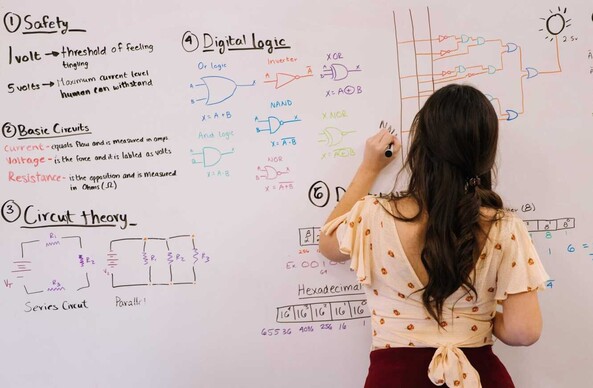 ① Safety
1 volt → threshold of feeling
tingling
5 volts → Maximum current level
human can withstand
② Basic Circuits
Current - equals flow and is measured in amps
Voltage - is the force and it is labled as volts
Resistance - is the opposition and is measured
in Ohms (Ω)
③ Circuit theory
R₁
R₂
R₃
V_T
Series Circuit
R₁
R₂
R₃
Parallel
④ Digital logic
Or logic
A
B
X
X = A+B
And logic
X = A·B
Inverter
A
NAND
X = \overline{A·B}
NOR
X = \overline{A+B}
XOR
A
B
X
X = A⊕B
XNOR
2.5v
⑥ D
(B)
8
4
Ex. 00
64
Hexadecimal
16⁴ 16³ 16² 16¹ 16⁰
65536 4096 256 16 1